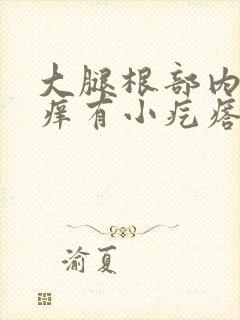 大腿根部内
痒有小疙瘩
渝夏